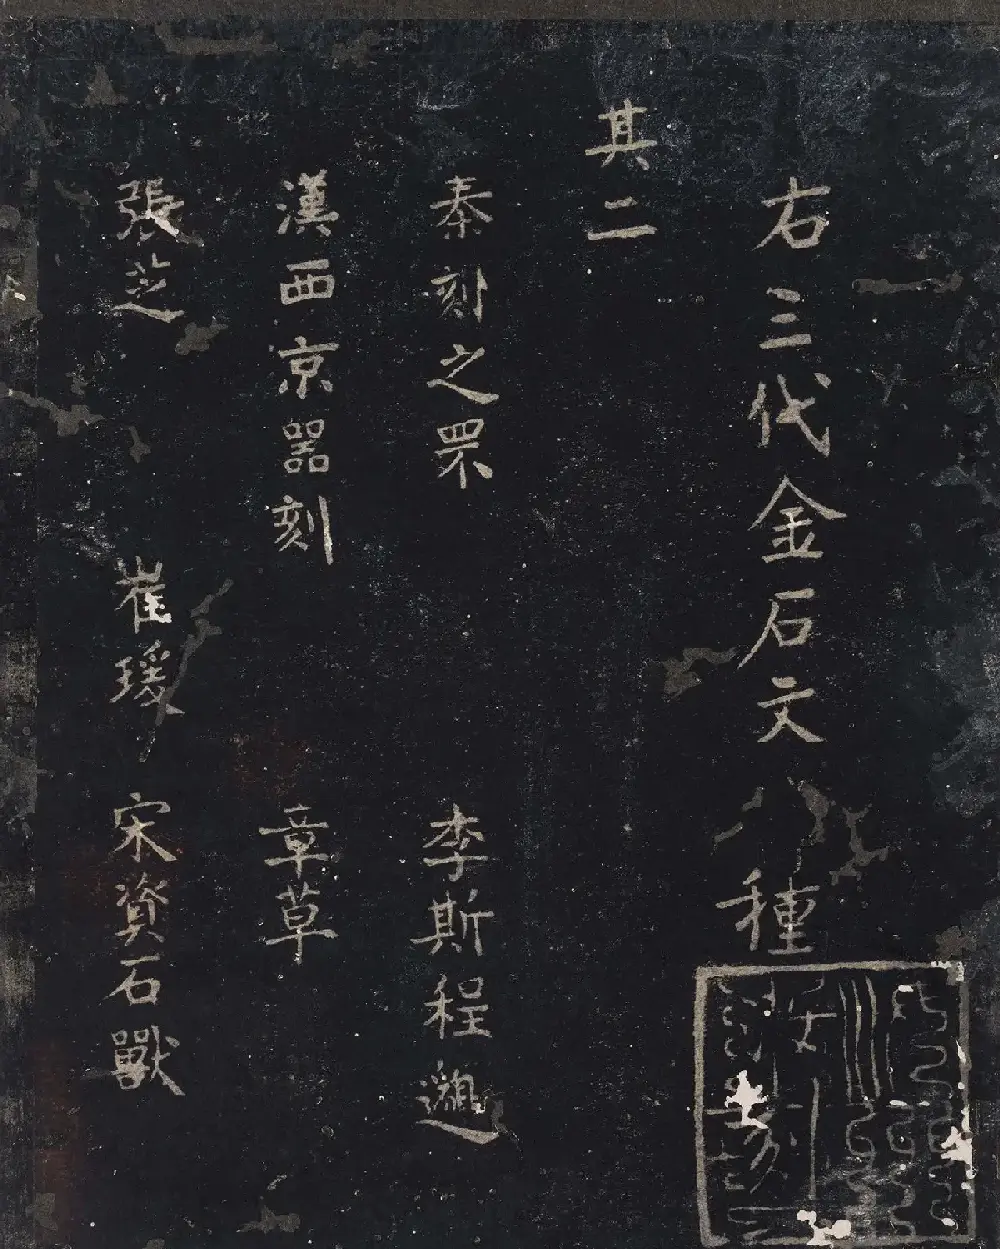 右三代金石文八種
其二
秦刻之罘 李斯程邈
漢西京器刻 章草
張芝 崔瑗 宋資石獸